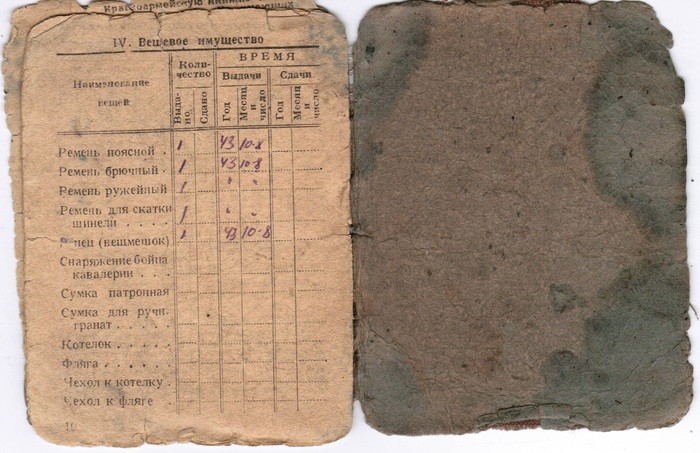 Красноармейскую книжку
IV. Вещевое имущество
Наименование вещей
Коли-
чество
ВРЕМЯ
Выдачи
Сдачи
Выда-
но
Сдано
Год
Месяц и число
Год
Месяц и число
Ремень поясной . 1 43 10-8
Ремень брючный . 1 43 10-8
Ремень ружейный 1 " "
Ремень для скатки
шинели . . . . 1 " "
Ранец (вещмешок) 1 43 10-8
Снаряжение бойца
кавалерии . . .
Сумка патронная
Сумка для ручн.
гранат . . . . .
Котелок . . . . .
Фляга . . . . . .
Чехол к котелку .
Чехол к фляге .
10